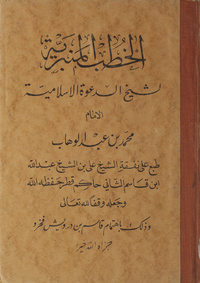 الخطب المنبرية
لشيخ الدعوة الإسلامية
الإمام
محمد بن عبد الوهاب
طبع على نفقة الشيخ علي بن الشيخ عبد الله
ابن قاسم الثاني حاكم قطر حفظه الله
وجعله وقفا لله تعالى
وذلك باهتمام قاسم بن درويش فخرو
جزاه الله خيرا